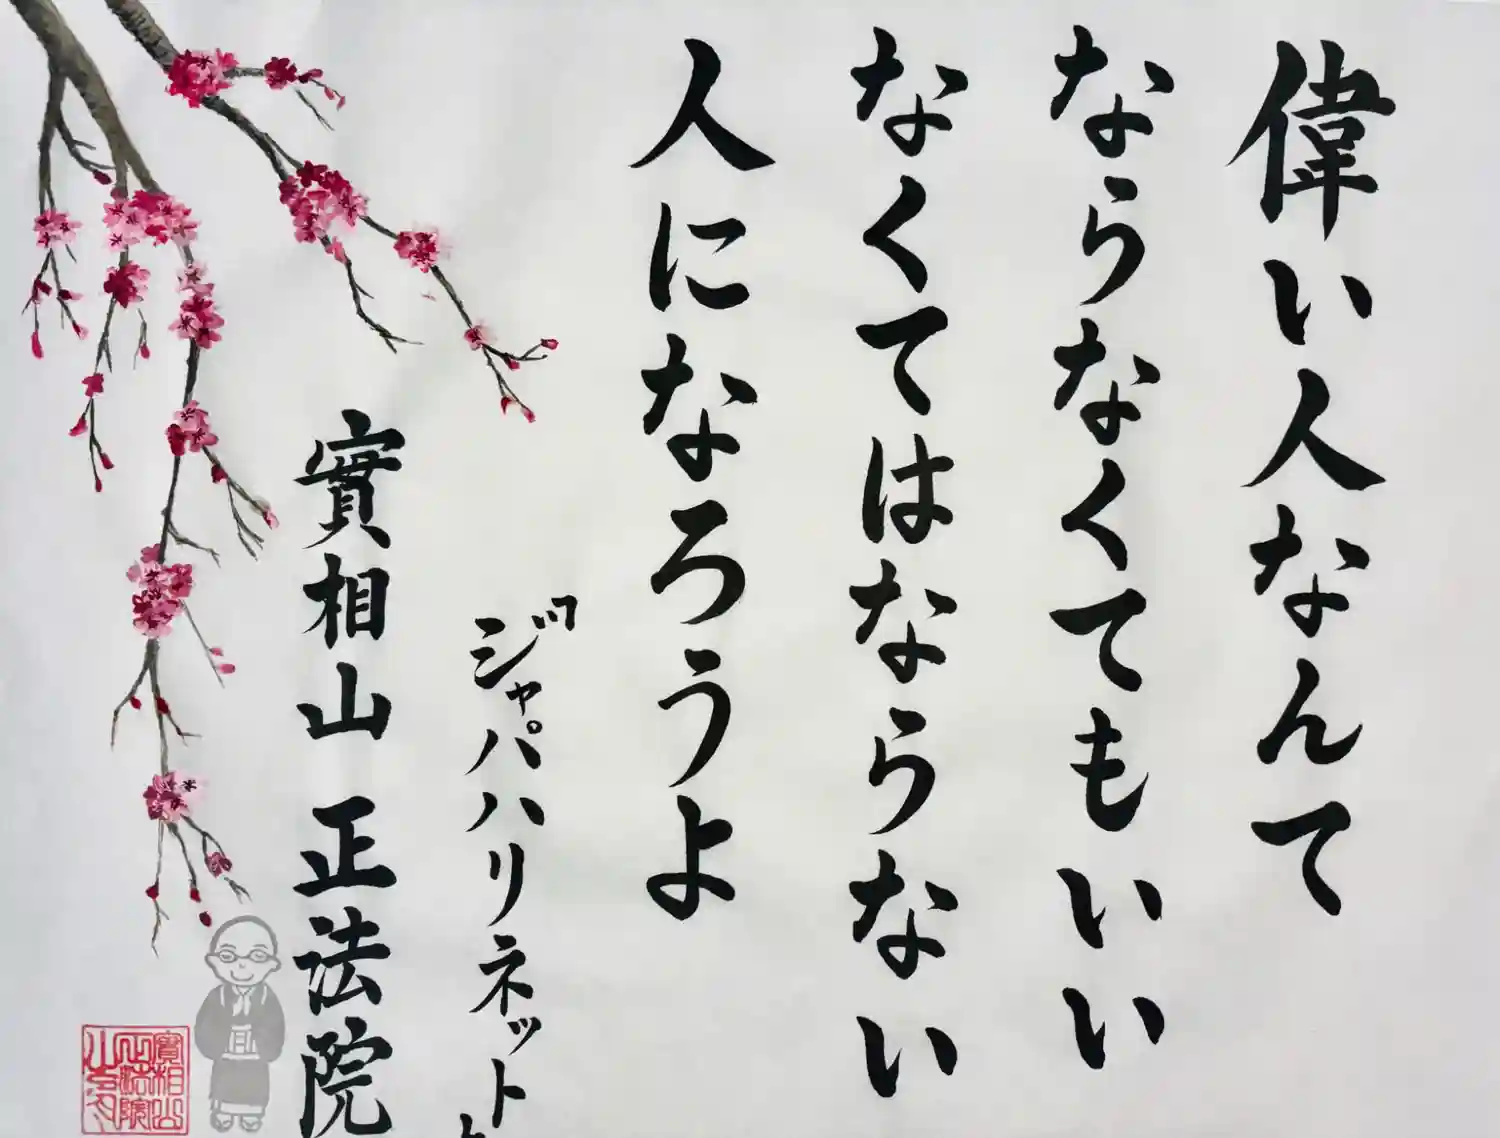 偉い人なんて
ならなくてもいい
なくてはならない
人になろうよ
ジャパハリネット
實相山 正法院